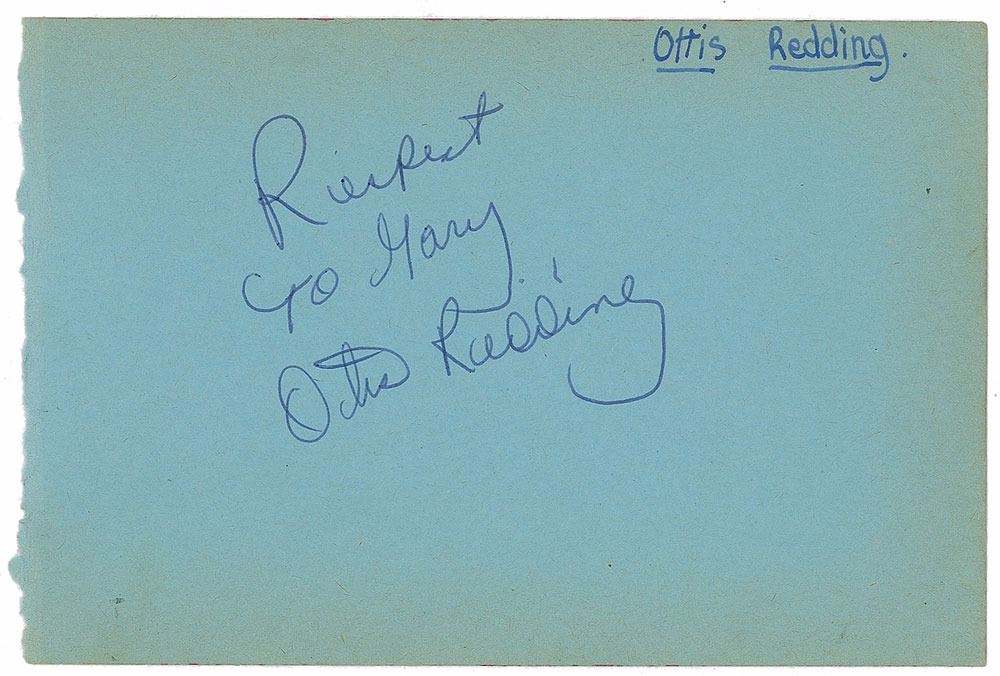 Ottis Redding.
Respect
to Mary
Otis Redding